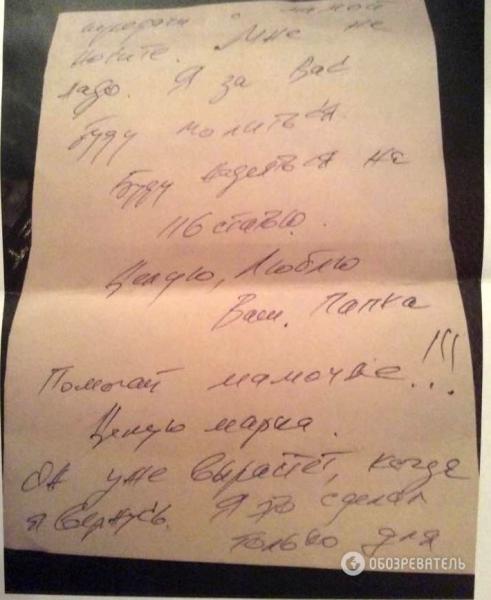 передачи с мамой
носите. Мне не
надо. Я за Вас
буду молиться.
Буду надеяться на
116 статью.
Целую, Люблю
Ваш. Папка
Помогай мамочке!!!
Целую марка.
Он уже вырастет, когда
я вернусь. Я это сделал
только для
ОБОЗРЕВАТЕЛЬ